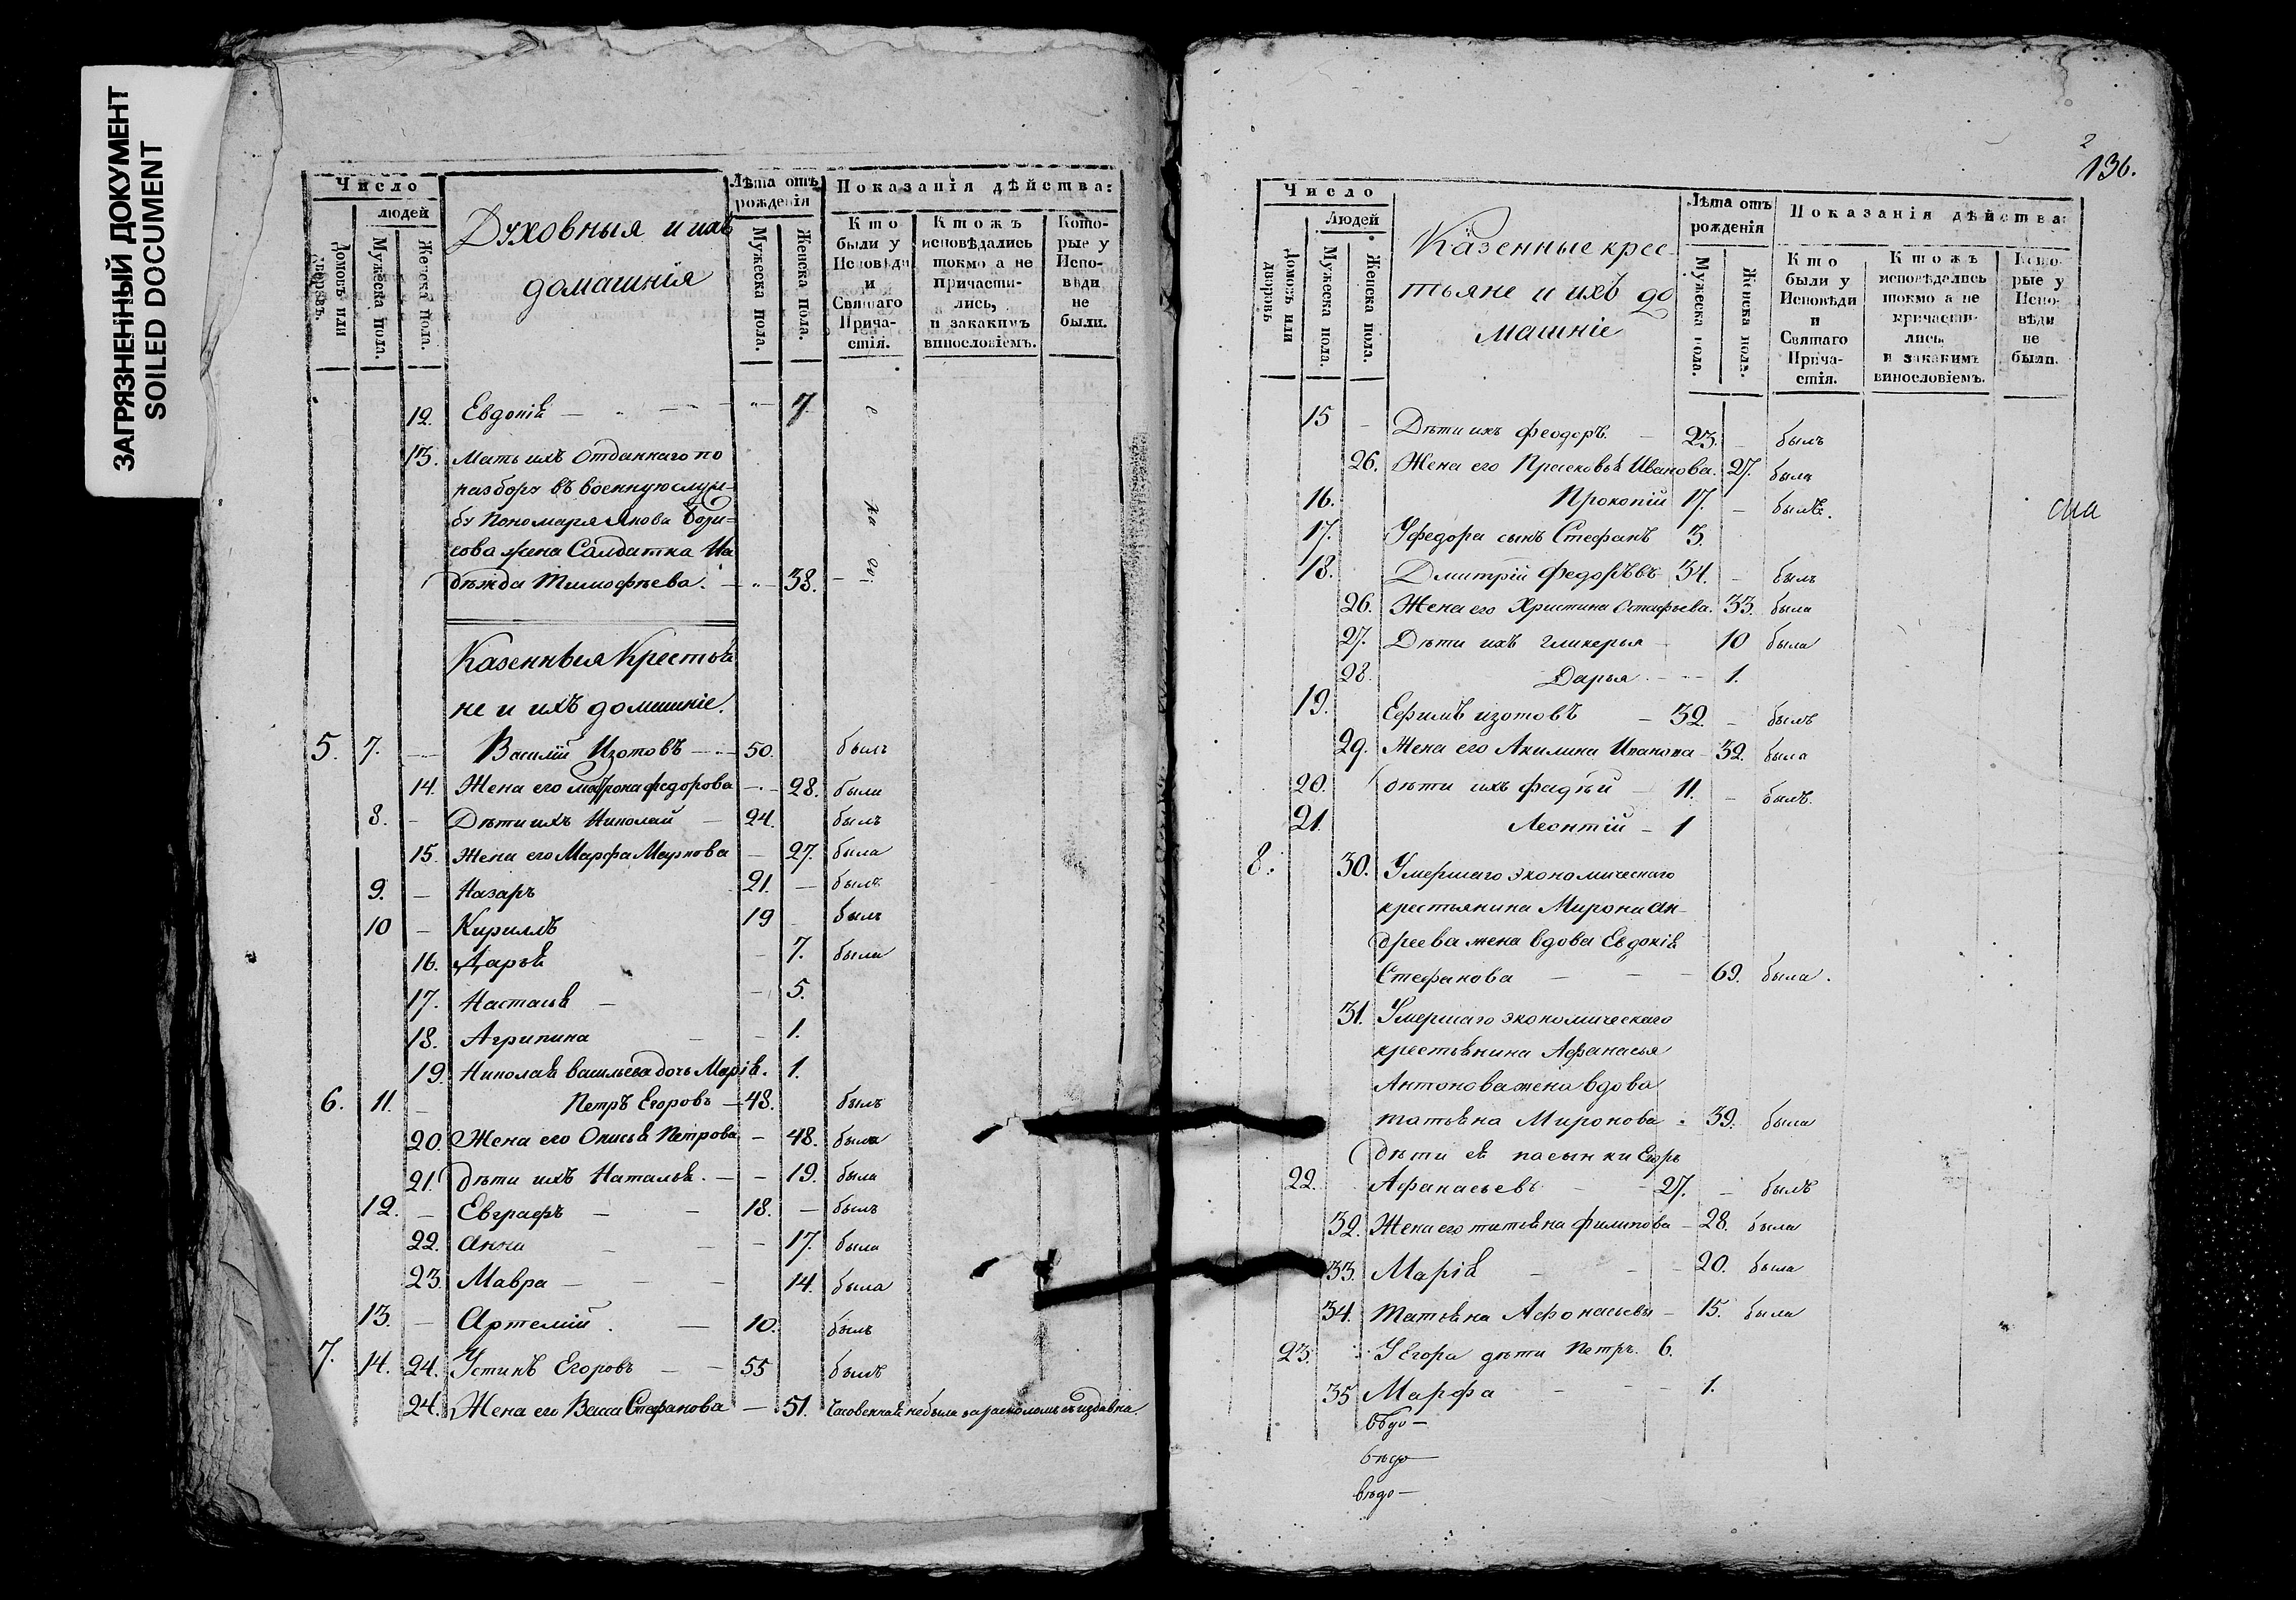 ЗАГРЯЗНЕННЫЙ ДОКУМЕНТ
SOILED DOCUMENT
Число
людей
Домовъ или дворовъ.
Мужеска пола.
Женска пола.
Духовныя и ихъ
домашнія
Лѣта отъ рожденія
Мужеска пола.
Женска пола.
Показанія дѣйства:
Кто были у Исповѣди и Святаго Причастія.
Ктожъ исповѣдались токмо а не причастились, и закакимъ винословіемъ.
Которые у Исповѣди не были.
12. Евдокія — " — 7.
13. Мать ихъ Отданнаго по
разбору въ военную служ-
бу Пономаря Якова Бори=
сова жена Салдатка На
дѣжда Тимофѣева. — " — 38. —
Казенныя Крестья
не и ихъ домашніе.
5. 7. — Василій Изотовъ — 50. былъ
14. Жена его Матрона федорова — 28. была
8. — Дѣти ихъ Николай — 24. былъ
15. Жена его Марфа Маркова — 27. была
9. — Назаръ 21. — былъ
10 — Кириллъ 19 — былъ
16. Дарья — 7. была
17. Настасья — 5.
18. Агрипина — 1.
19. Николая васильева дочь Марія. 1.
6. 11. — Петръ Егоровъ — 48. былъ
20. Жена его Онисья Петрова — 48. была
21. дѣти ихъ Наталья. — 19. была
12. — Евграфъ — 18. — былъ
22. Анна — 17. была
23. Мавра — 14. была
13. — Артемій. — 10. былъ
7. 14. 24. Устинъ Егоровъ — 55 былъ
24. Жена его Васса Стефанова — 51. Часовенная небыла за расколомъ съ издавна
2
136.
Число
Людей
Домовъ или дворовъ
Мужеска пола.
Женска пола.
Казенные крес-
тьяне и ихъ до
машніе
Лѣта отъ рожденія
Мужеска пола.
Женска пола.
Показанія дѣйства:
Кто были у Исповѣди и Святаго Причастія.
Ктожъ исповѣдались токмо а не причастились, и закакимъ винословіемъ.
Которые у Исповѣди не были.
15 — Дѣти ихъ Феодоръ. — 23. — былъ
26. Жена его Прасковья Иванова. 27. была
16. Прокопій 17. — былъ.
17. У федора сынъ Стефанъ 3.
18. Дмитрій Федоровъ 34. — былъ
26. Жена его Христина Остафьева. 33. была
27. Дѣти ихъ гликерья — 10 была
28. Дарья. — 1.
19. Ефимъ изотовъ — 32. — былъ
29. Жена его Акилина Иванова — 32. была
20. дѣти ихъ фадѣй — 11. — былъ.
21. Леонтій — 1
8. 30. Умершаго экономическаго
крестьянина Мирона Ан-
дреева жена вдова Евдокія
Стефанова — 69. была.
31. Умершаго экономическаго
крестьянина Афанасья
Антонова жена вдова
татьяна Миронова 39. была
Дѣти ея пасынки Егоръ
22. Афанасьевъ — 27. — былъ
32. Жена его татьяна филипова — 28. была
33. Марія — 20. была
34. Татьяна Афонасьевы — 15. была
23. У Егора дѣти Петръ. 6.
35 Марфа — 1.